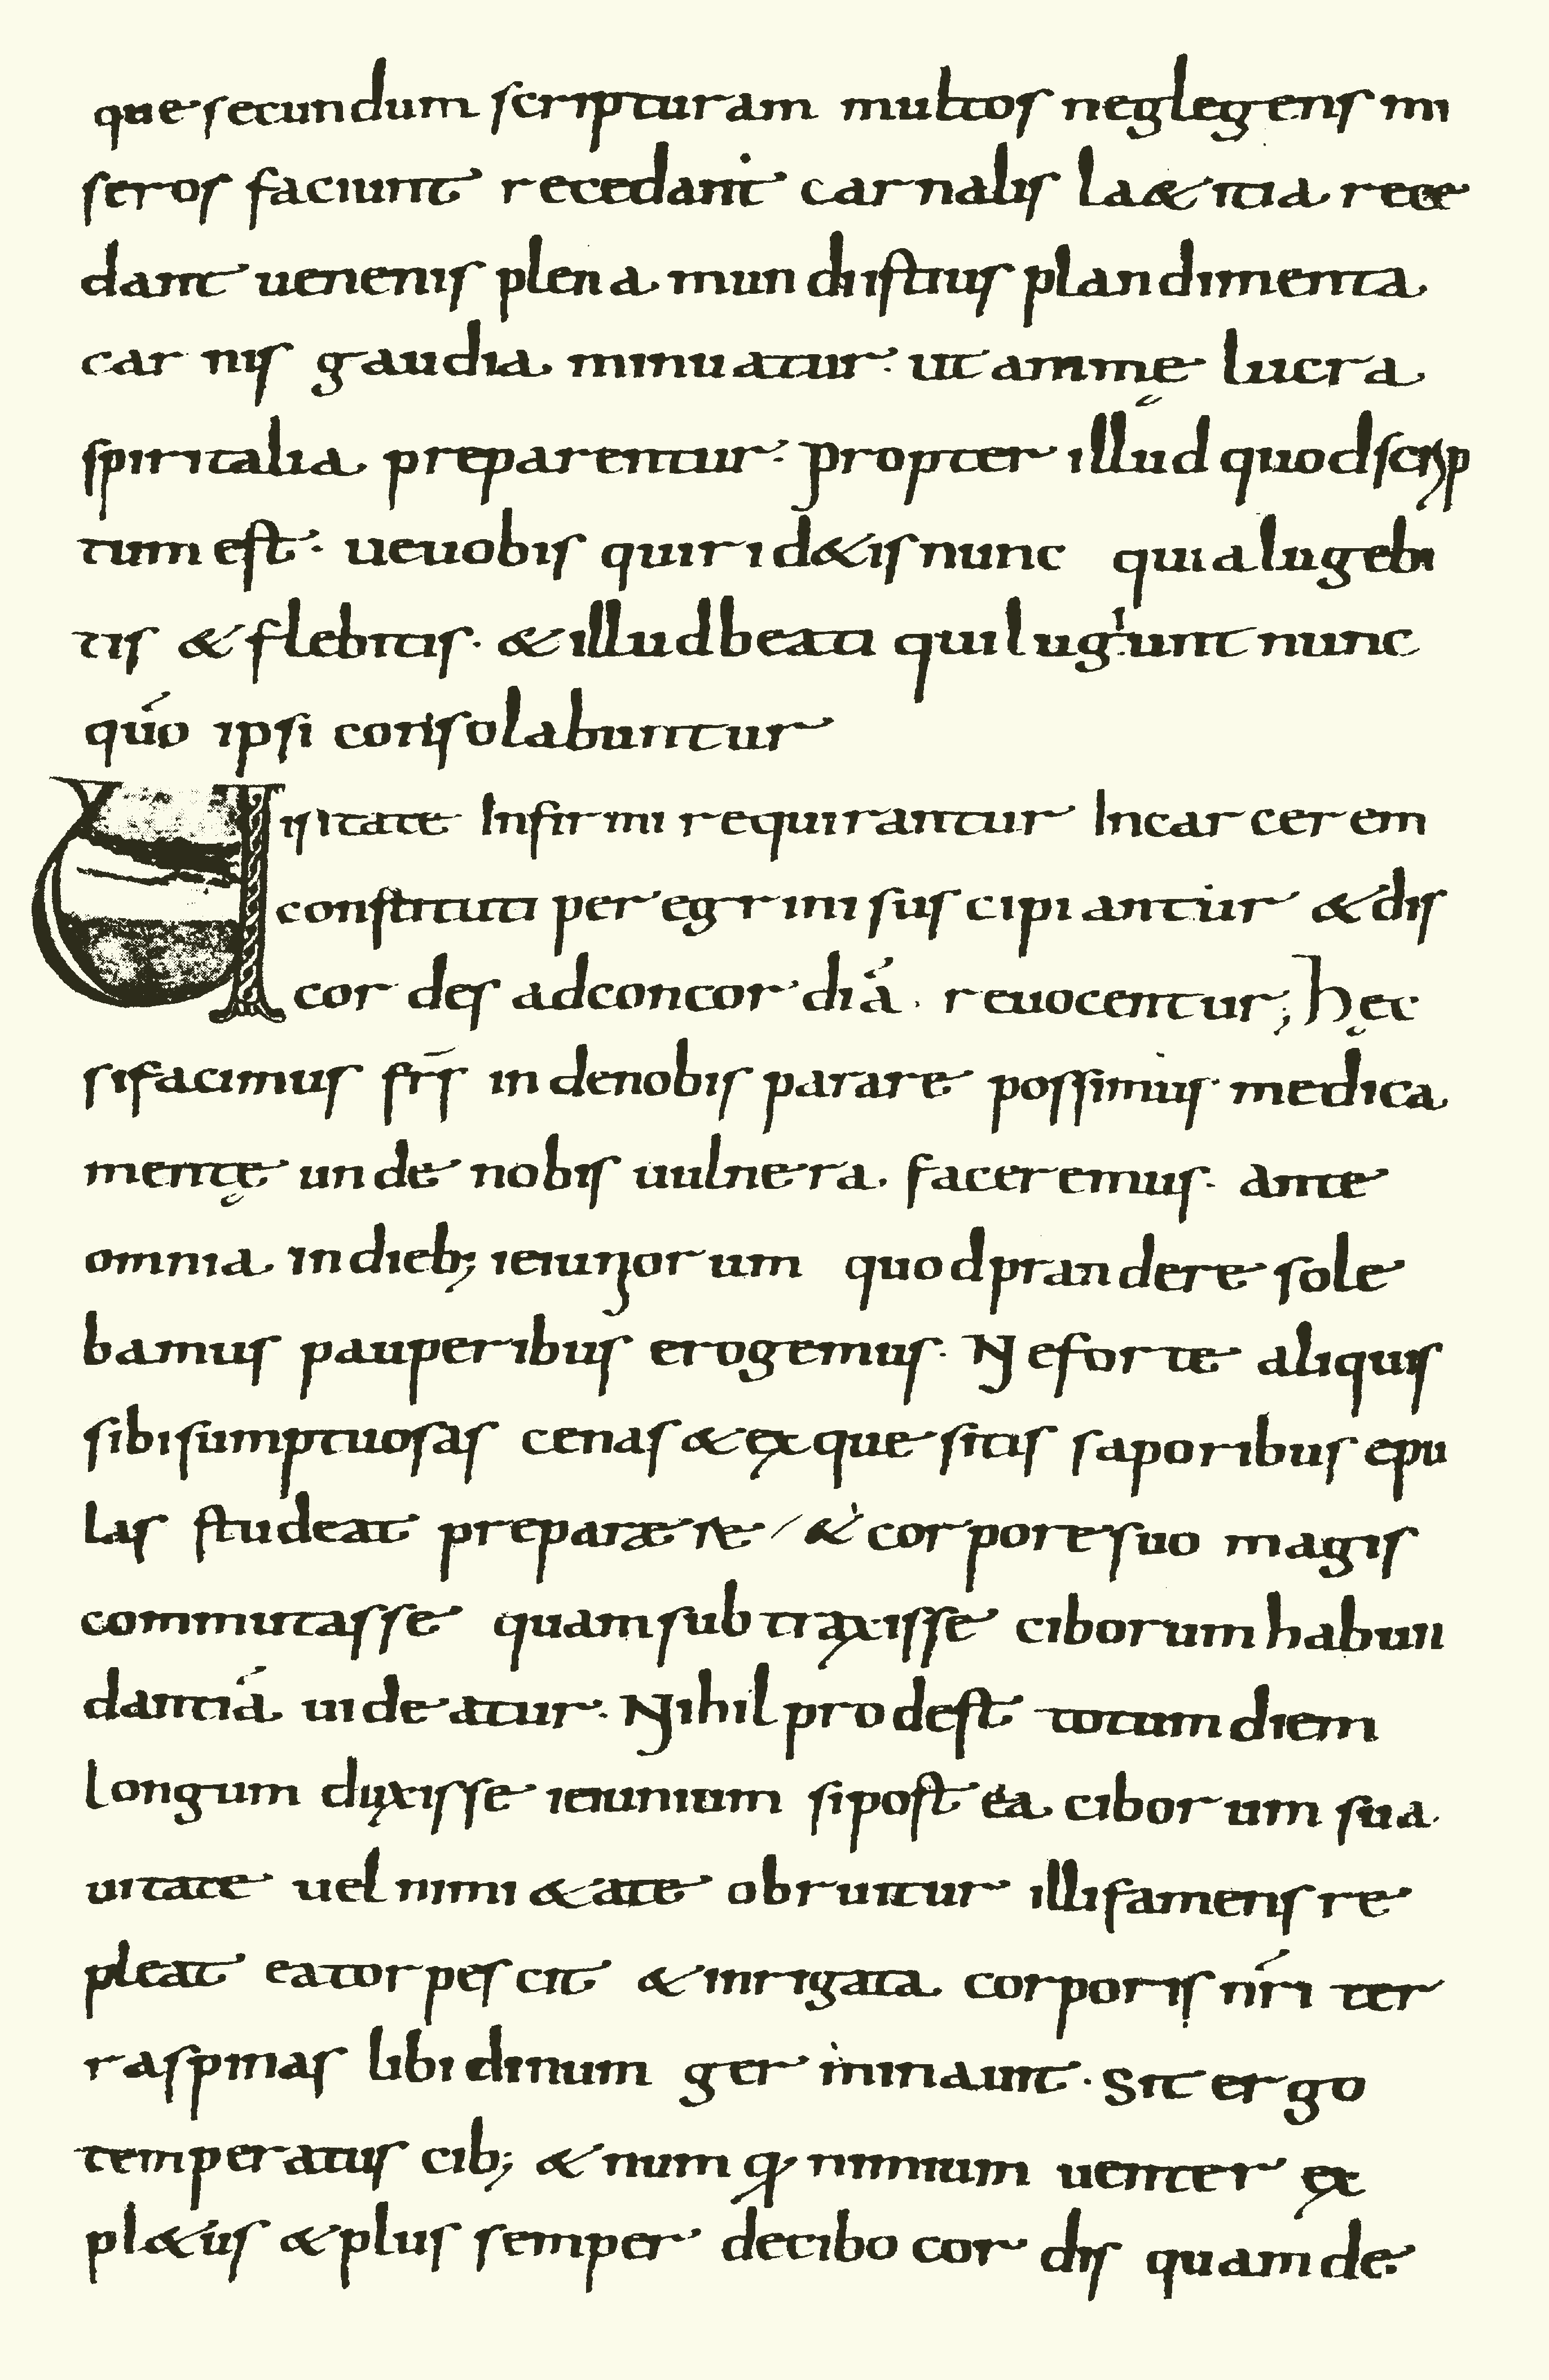 que secundum scripturam multos neglegens mi
seros faciunt recedant carnalis la&itia rece
dant uenenis plena mundi istius plandimenta
carnis gaudia minuatur· ut animę lucra
spiritalia preparentur· propter illud quod scrip
tum est· ue uobis qui rid&is nunc quia lugebi
tis & flebitis· & illud beati qui lugunt nunc
quó ipsi consolabuntur
Uisitate Infirmi requirantur In carcerem
constituti peregrini suscipiantur & dis
cordes ad concordiā· reuocentur; hęc
si facimus fr̄s inde nobis parare possimus· medica
mentę unde nobis uulnera faceremus· ante
omnia in dieb; ieiuniorum quod prandere sole
bamus pauperibus erogemus· Ne forte aliquis
sibi sumptuosas cenas & exquesitis saporibus epu
las studeat preparære / & corpore suo magis
commutasse quam subtraxisse ciborum habun
dantiā uideatur· Nihil prodest totum diem
longum duxisse ieiunium si post ea ciborum sua
uitate uel nimi&ate obruitur illi famens re
pleat ea torpescit & inrigata corporis nr̄i ter
ra spinas libidinum germinauit· Sit ergo
temperatus cib; & numqȝ nimium uenter ex
pl&us & plus semper de cibo cordis quam de